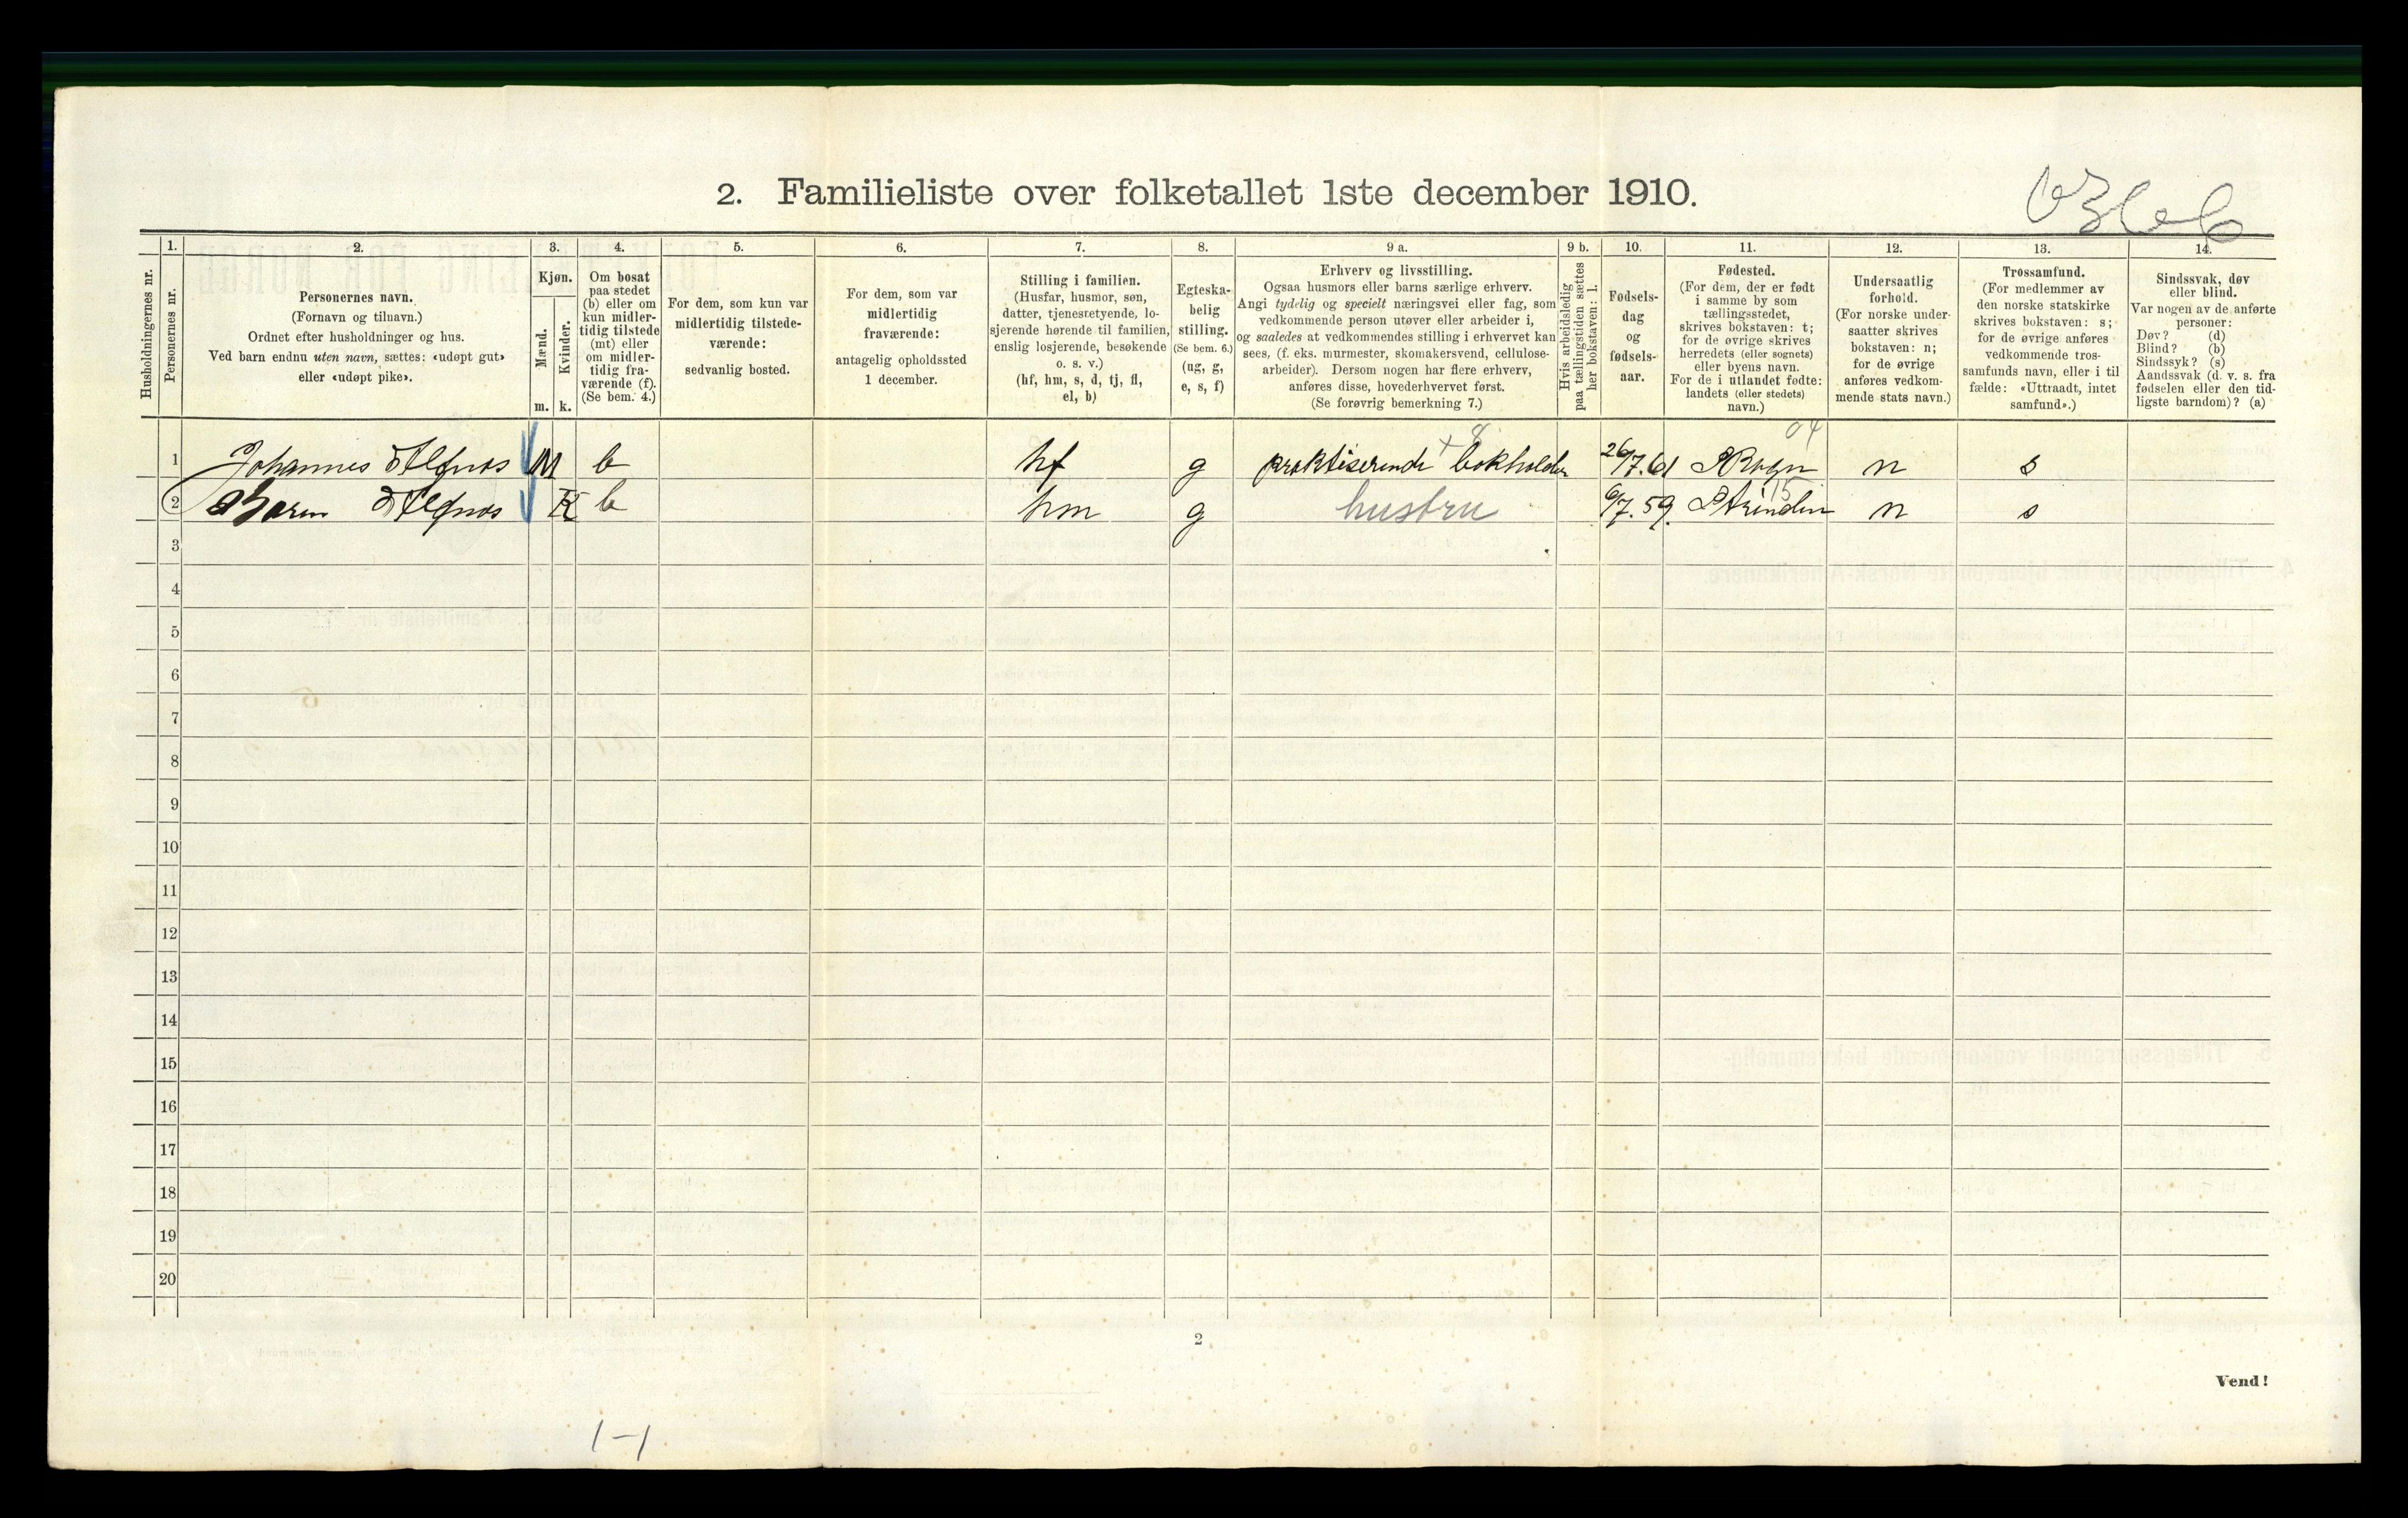 2. Familieliste over folketallet 1ste december 1910.
Husholdningernes nr.
1.
Personernes nr.
2.
Personernes navn.
(Fornavn og tilnavn.)
Ordnet efter husholdninger og hus.
Ved barn endnu uten navn, sættes: «udøpt gut»
eller «udøpt pike».
3.
Kjøn.
Mænd.
m.
Kvinder.
k.
4.
Om bosat
paa stedet
(b) eller om
kun midler-
tidig tilstede
(mt) eller
om midler-
tidig fra-
værende (f).
(Se bem. 4.)
5.
For dem, som kun var
midlertidig tilstede-
værende:
sedvanlig bosted.
6.
For dem, som var
midlertidig
fraværende:
antagelig opholdssted
1 december.
7.
Stilling i familien.
(Husfar, husmor, søn,
datter, tjenestetyende, lo-
sjerende hørende til familien,
enslig losjerende, besøkende
o. s. v.)
(hf, hm, s, d, tj, fl,
el, b)
8.
Egteska-
belig
stilling.
(Se bem. 6.)
(ug, g,
e, s, f)
9 a.
Erhverv og livsstilling.
Ogsaa husmors eller barns særlige erhverv.
Angi tydelig og specielt næringsvei eller fag, som
vedkommende person utøver eller arbeider i,
og saaledes at vedkommendes stilling i erhvervet kan
sees, (f. eks. murmester, skomakersvend, cellulose-
arbeider). Dersom nogen har flere erhverv,
anføres disse, hovederhvervet først.
(Se forøvrig bemerkning 7.)
9 b.
Hvis arbeidsledig
paa tællingstiden sættes
her bokstaven: l.
10.
Fødsels-
dag
og
fødsels-
aar.
11.
Fødested.
(For dem, der er født
i samme by som
tællingsstedet,
skrives bokstaven: t;
for de øvrige skrives
herredets (eller sognets)
eller byens navn.
For de i utlandet fødte:
landets (eller stedets)
navn.)
12.
Undersaatlig
forhold.
(For norske under-
saatter skrives
bokstaven: n;
for de øvrige
anføres vedkom-
mende stats navn.)
13.
Trossamfund.
(For medlemmer av
den norske statskirke
skrives bokstaven: s;
for de øvrige anføres
vedkommende tros-
samfunds navn, eller i til
fælde: «Uttraadt, intet
samfund».)
14.
Sindssvak, døv
eller blind.
Var nogen av de anførte
personer:
Døv? (d)
Blind? (b)
Sindssyk? (s)
Aandssvak (d. v. s. fra
fødselen eller den tid-
ligste barndom)? (a)
1 Johannes M b hf g praktiserende bokholder 26/7.61 n s
2 K b hm g hustru 6/7.59 Strinden n s
3
4
5
6
7
8
9
10
11
12
13
14
15
16
17
18
19
20
2
Vend!
1-1